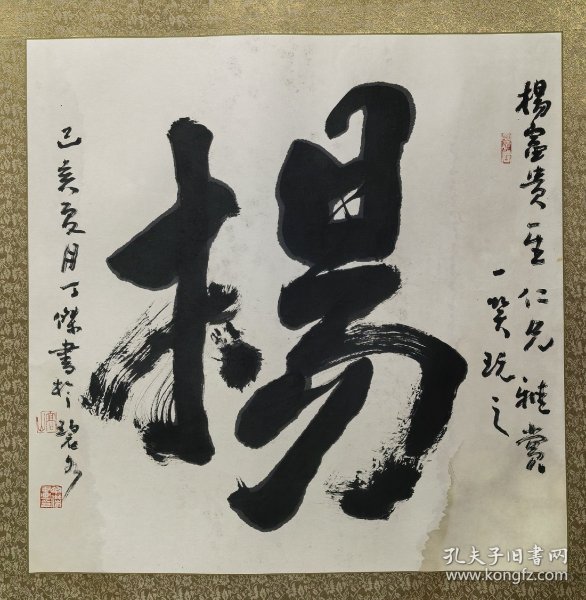 楊富贵一生仁兄雅赏
一笑玩之
楊
己亥夏月丁傑書於碧
孔夫子旧书网
www.kongfz.com